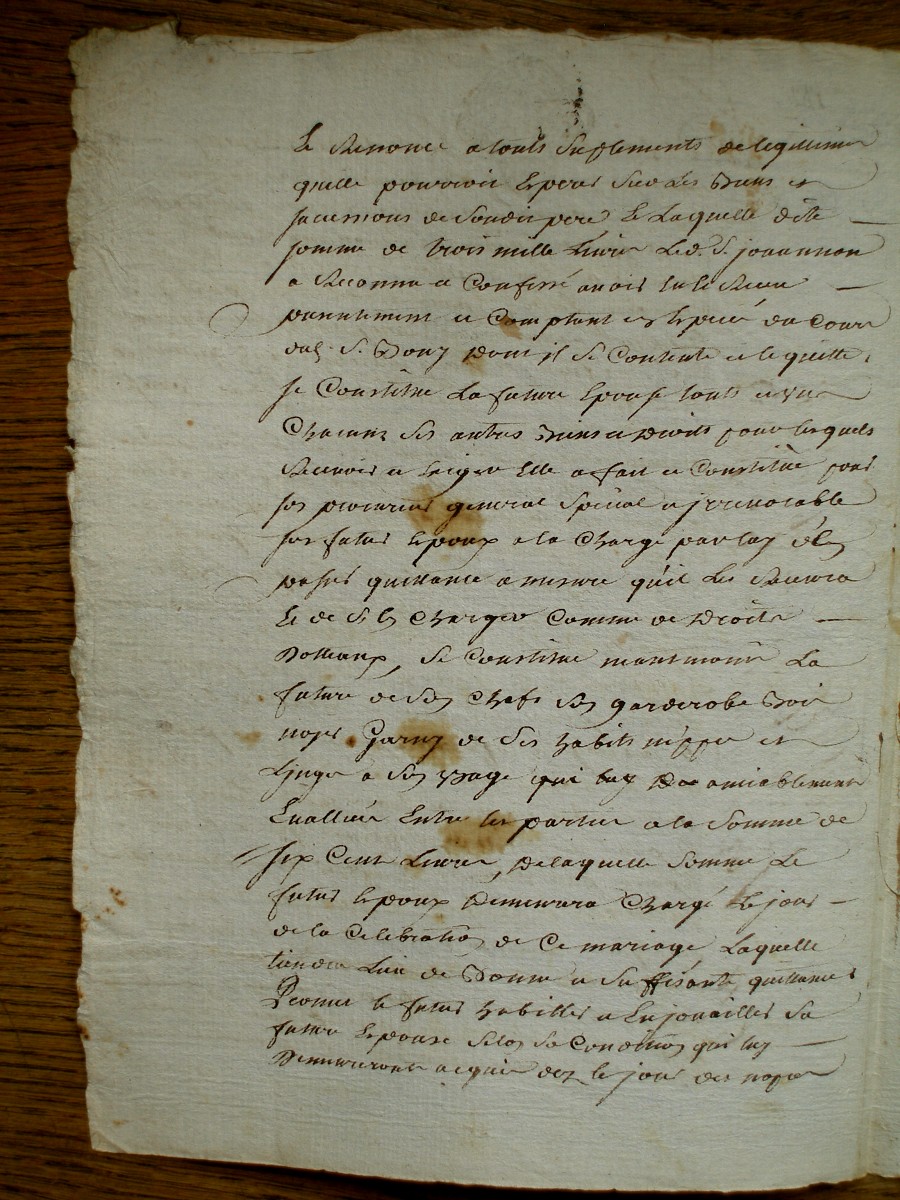 Et Renonce a touts suplements de legittime
quelle pourroit Esperer sur Les Biens et
successions de son dit pere Et Laquelle dite
somme de trois mille Livres Led. S. joüannon
a Reconnu et Confessé avoir Eu et Receu
et Comptant en Especes du Cours
dud. S. Bouy Dont jl se Contente et le quitte,
se Constitüe La future Epouse touts et un
Chacuns ses autres Biens et Droits pour lesquels
Recevoir et Exiger Elle a fait et Constitüé pour
son procureur general special et jrrevocable
son futur Epoux a la Charge par luy d'En
passer quittance a mesure quil Les Recevra
Et de s'En Charger Comme de Droits
Dottaux, se Constitüe mantmoins La
future de son Chef son garderobe Bois
noyer Garny de ses habits nippes et
Linges a son Usage qui luy amiablement
Evallüé Entre les parties a la somme de
six Cent Livres, De laquelle somme Le
futur Epoux Demeurera Chargé Le jour
de la Celebration de Ce mariage Laquelle
tiendra Lieu de Bonne et suffisante quittance
Promet le futur habiller et Enjoüailler sa
future Epouse selon sa Condition qui luy
Demeureront acquis dez le jour des nopces